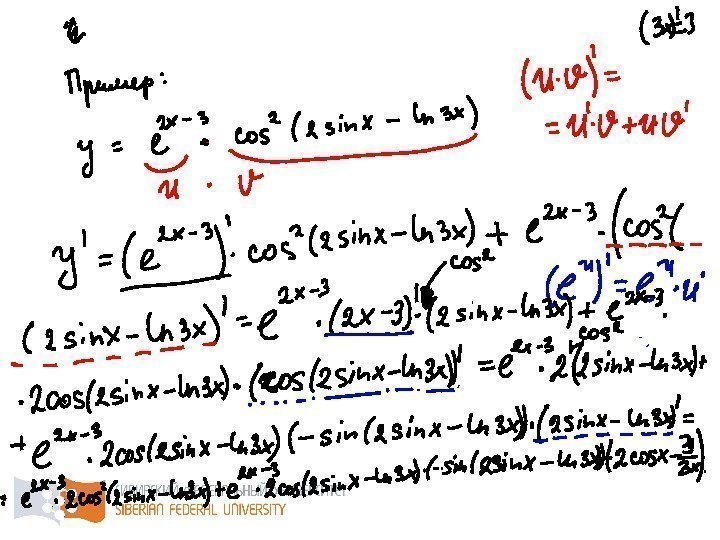 (3x)'=3
Пример:
y = e^{2x-3} · cos²(2sinx - ln3x)
u · v
(u·v)' =
= u'·v + u·v'
y' = (e^{2x-3})' · cos²(2sinx - ln3x) + e^{2x-3} · (cos²(
cos²
(e^u)' = e^u · u'
(2sinx - ln3x)' = e^{2x-3} · (2x-3)' · (2sinx - ln3x) + e^{2x-3} ·
cos²
· 2cos(2sinx - ln3x) · (cos(2sinx - ln3x))' = e^{2x-3} · 2(2sinx - ln3x) +
+ e^{2x-3} · 2cos(2sinx - ln3x)(-sin(2sinx - ln3x)) · (2sinx - ln3x)' =
= e^{2x-3} · 2cos²(2sinx - ln3x) + e^{2x-3} · 2cos(2sinx - ln3x)(-sin(2sinx - ln3x))(2cosx - 3/3x).
SIBERIAN FEDERAL UNIVERSITY